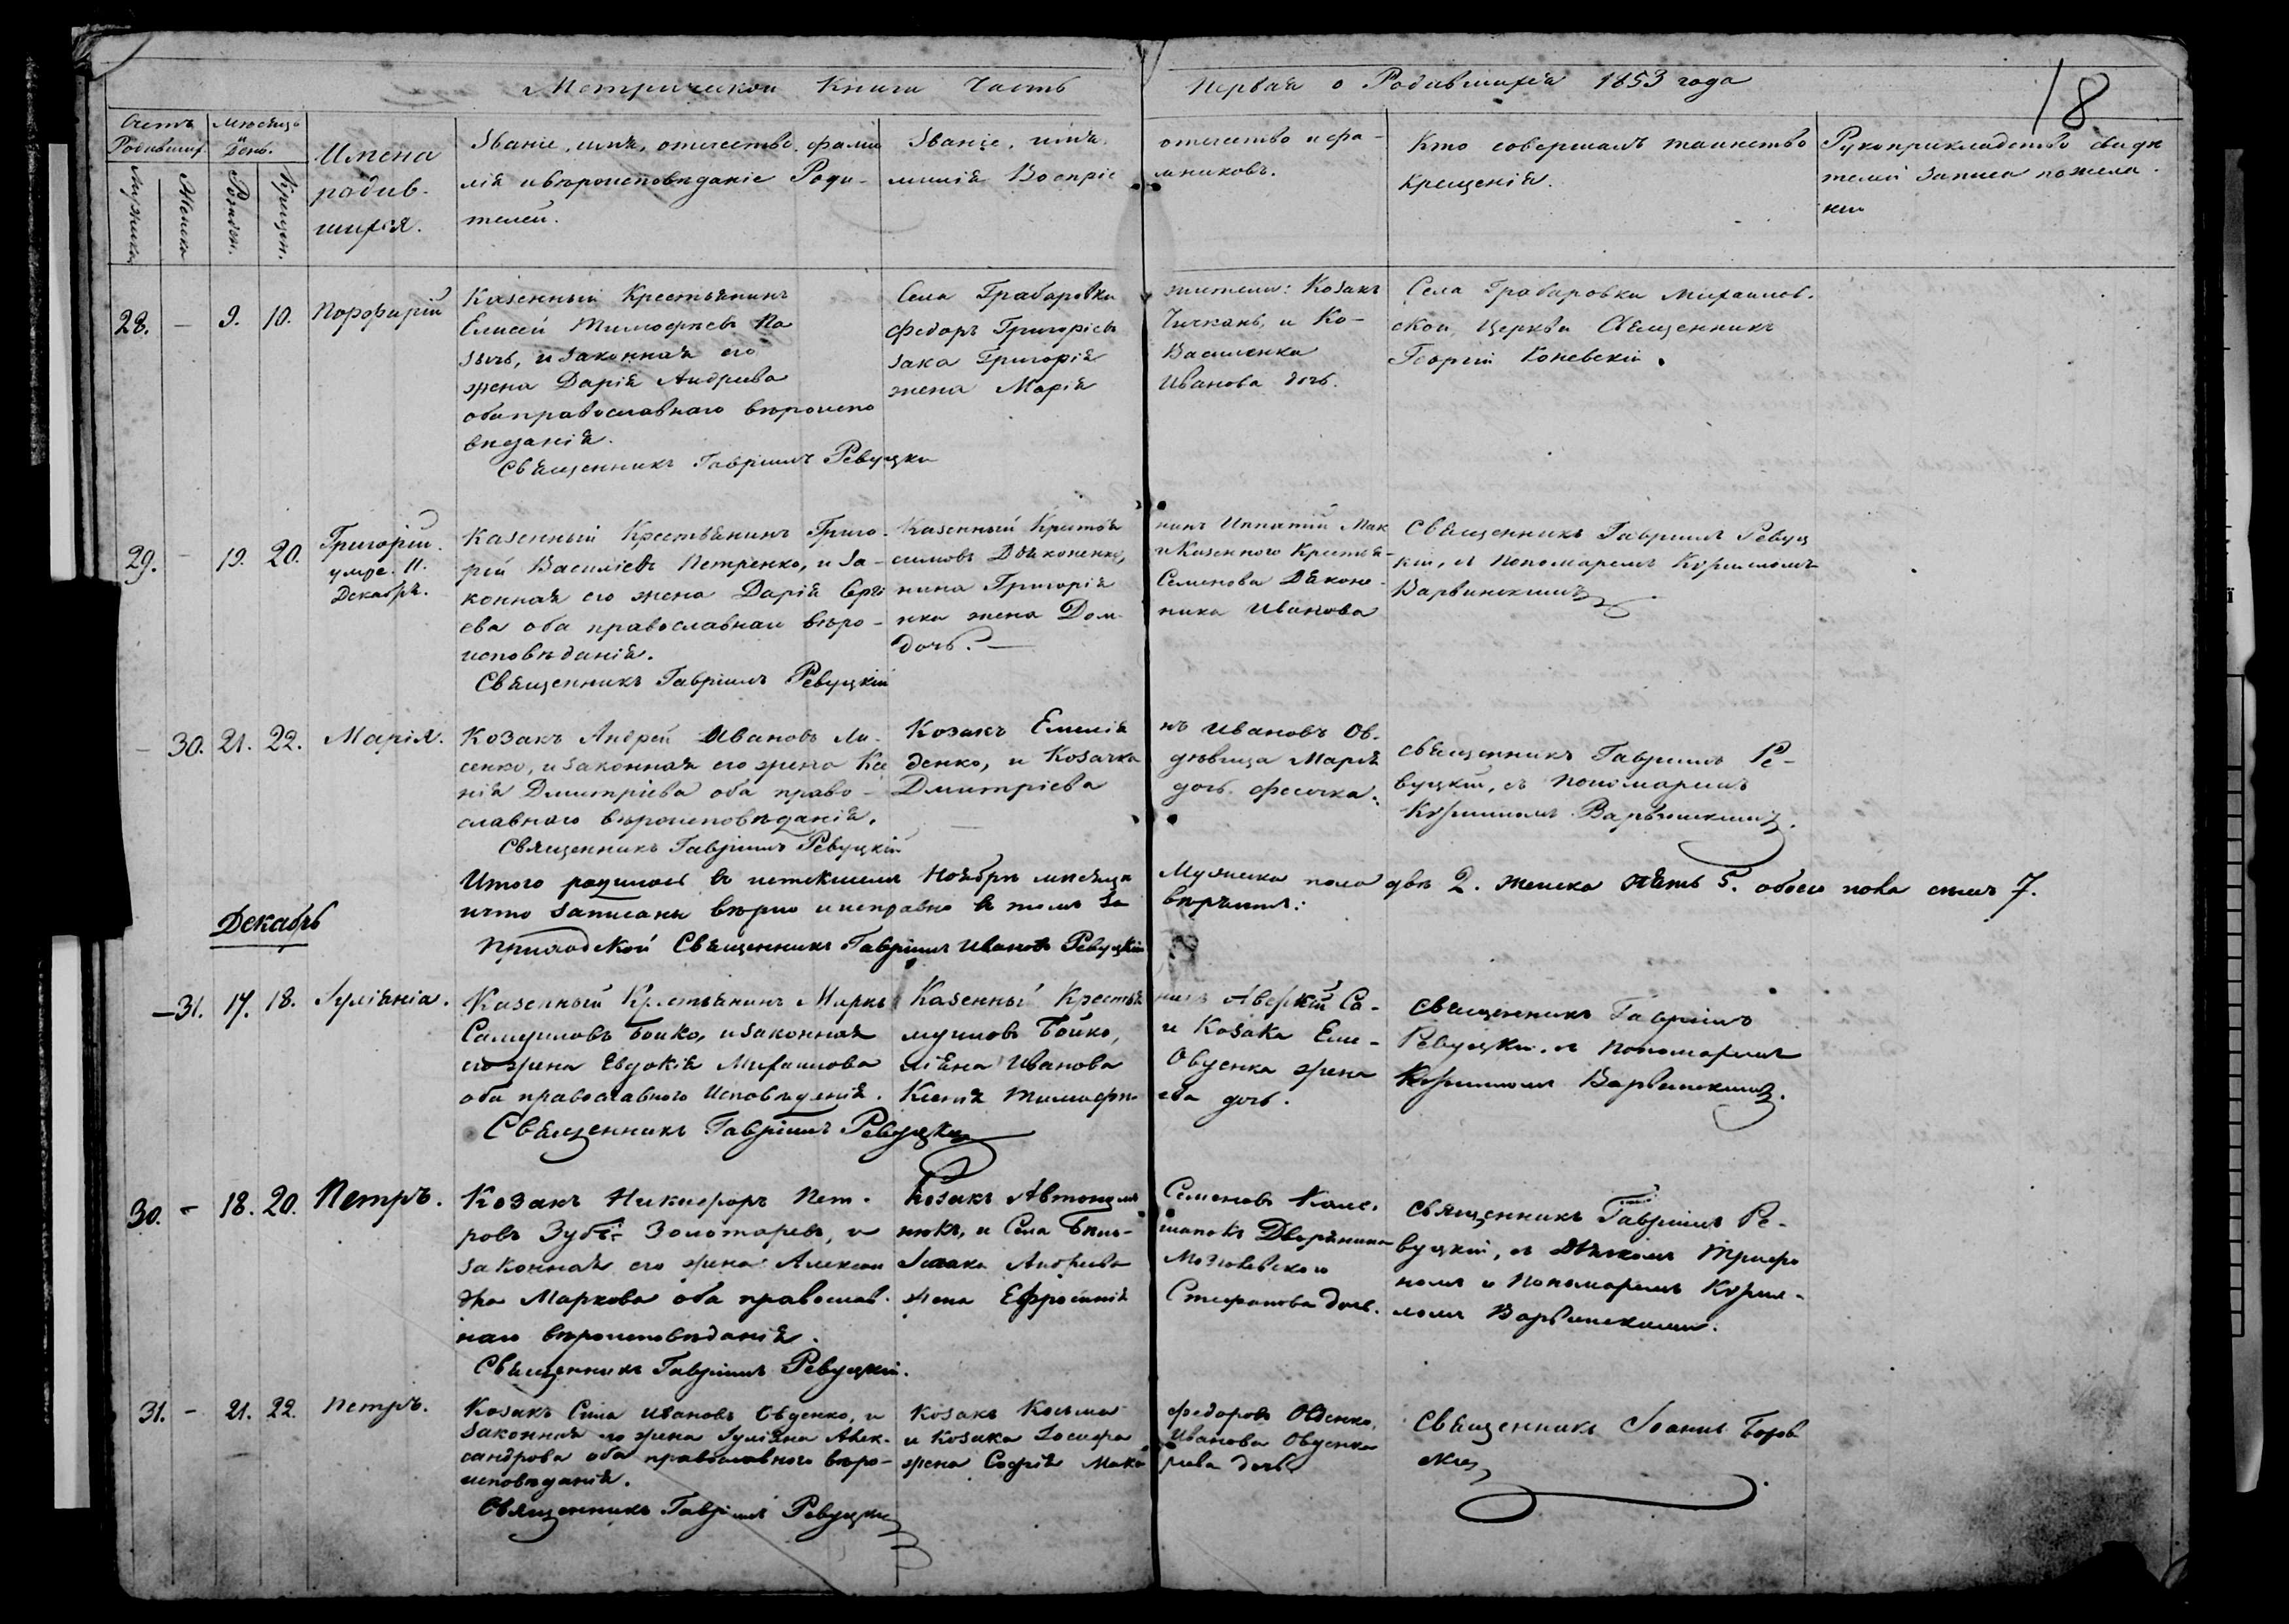 Метрической Книги Часть Первая о Родившихся 1853 года
18
Счетъ Родивших.
Мѣсяцъ и День.
Мужеска
Женска
Рожден.
Крещен.
Имена
родив-
шихся.
Званіе, имя, отчество, фами
лія и вѣроисповѣданіе Роди-
телей.
Званіе, имя, отчество и фа-
милія Воспріемниковъ.
Кто совершалъ таинство
Крещенія.
Рукоприкладство свидѣ
телей записи по жела
нію
28. – 9. 10. Порфирій
Казенный Крестьянинъ
Елисей Тимофеевъ По
зычь, и законная его
жена Дарія Андреева
оба православнаго вѣроиспо
вѣданія.
Священникъ Гавріилъ Ревуцкій
Села Грабаровки жители: Козакъ
Федоръ Григоріевъ Чичкань, и Ко-
зака Григорія Василенка
жена Марія Иванова дочь.
Села Грабаровки Михайлов-
ской Церкви Священникъ
Георгій Коневскій.
29. – 19. 20. Григорій.
умре. 11.
Декабря.
Казенный Крестьянинъ Григо-
рій Василіевъ Петренко, и за-
конная его жена Дарія Сергі
ева оба православнаго вѣро-
исповѣданія.
Священникъ Гавріилъ Ревуцкій
Казенный Крестья нинъ Ипатій Мак
симовъ Дяконенко, и Казенного Крестья-
нина Григорія Семенова Дяконе-
нка жена Дом ника Иванова
дочь. –
Священникъ Гавріилъ Ревуц
кій, съ Пономаремъ Кириломъ
Варвинскимъ
– 30. 21. 22. Марія.
Козакъ Андрей Ивановъ Ли-
сенко, и законная его жена Ксе
нія Дмитріева оба право-
славнаго вѣроисповѣданія.
Священникъ Гавріилъ Ревуцкій
Козакъ Емилія нъ Ивановъ Ов-
денко, и Козачка дѣвица Марія
Дмитріева дочь
Священникъ Гавріилъ Ре-
вуцкій, съ Пономаремъ
Кириломъ Варвинскимъ.
Итого родилось въ истекшемъ Ноябрѣ мѣсяцѣ Мужеска пола двѣ 2. женска пять 5. обоего пола семь 7.
и что записаны вѣрно и исправно въ томъ за вѣряемъ:
Приходской Священникъ Гавріилъ Ивановъ Ревуцкій
Декабрь
– 31. 17. 18. Іуліянія.
Казенный Крестьянинъ Марко
Самуиловъ Бойко, и законная
его жена Евдокія Михаилова
оба православного Исповѣданія.
Священникъ Гавріилъ Ревуцкій
Казенный Крестья нинъ Аверкій Са-
муиловъ Бойко, и Козака Еми-
ліяна Иванова Овденка жена
Ксенія Тимофе ева дочь.
Священникъ Гавріилъ
Ревуцкій, съ Пономаремъ
Кириломъ Варвинскимъ.
30. – 18. 20. Петръ.
Козакъ Никифоръ Пет-
ровъ Золотаревъ, и
законная его жена Алексан
дра Маркова оба православ-
наго вѣроисповѣданія.
Священникъ Гавріилъ Ревуцкій.
Козакъ Автономъ Семеновъ
и Села Дворянина
Исаака Андреева
жена Ефросинія Стефанова дочь.
Священникъ Гавріилъ Ре-
вуцкій, съ Дьякомъ Трифо
номъ и Пономаремъ Кирил-
ломъ Варвинскими.
31. – 21. 22. Петръ.
Козакъ Сила Ивановъ Овденко, и
законная его жена Іуліяна Алек-
сандрова оба православного вѣро-
исповѣданія.
Священникъ Гавріилъ Ревуцкій
Козакъ Косьма Федоровъ Овденко,
и Козака Іосифа Иванова Овденка
жена Софія Мака рова дочь
Священникъ Іоаннъ Боров
скій